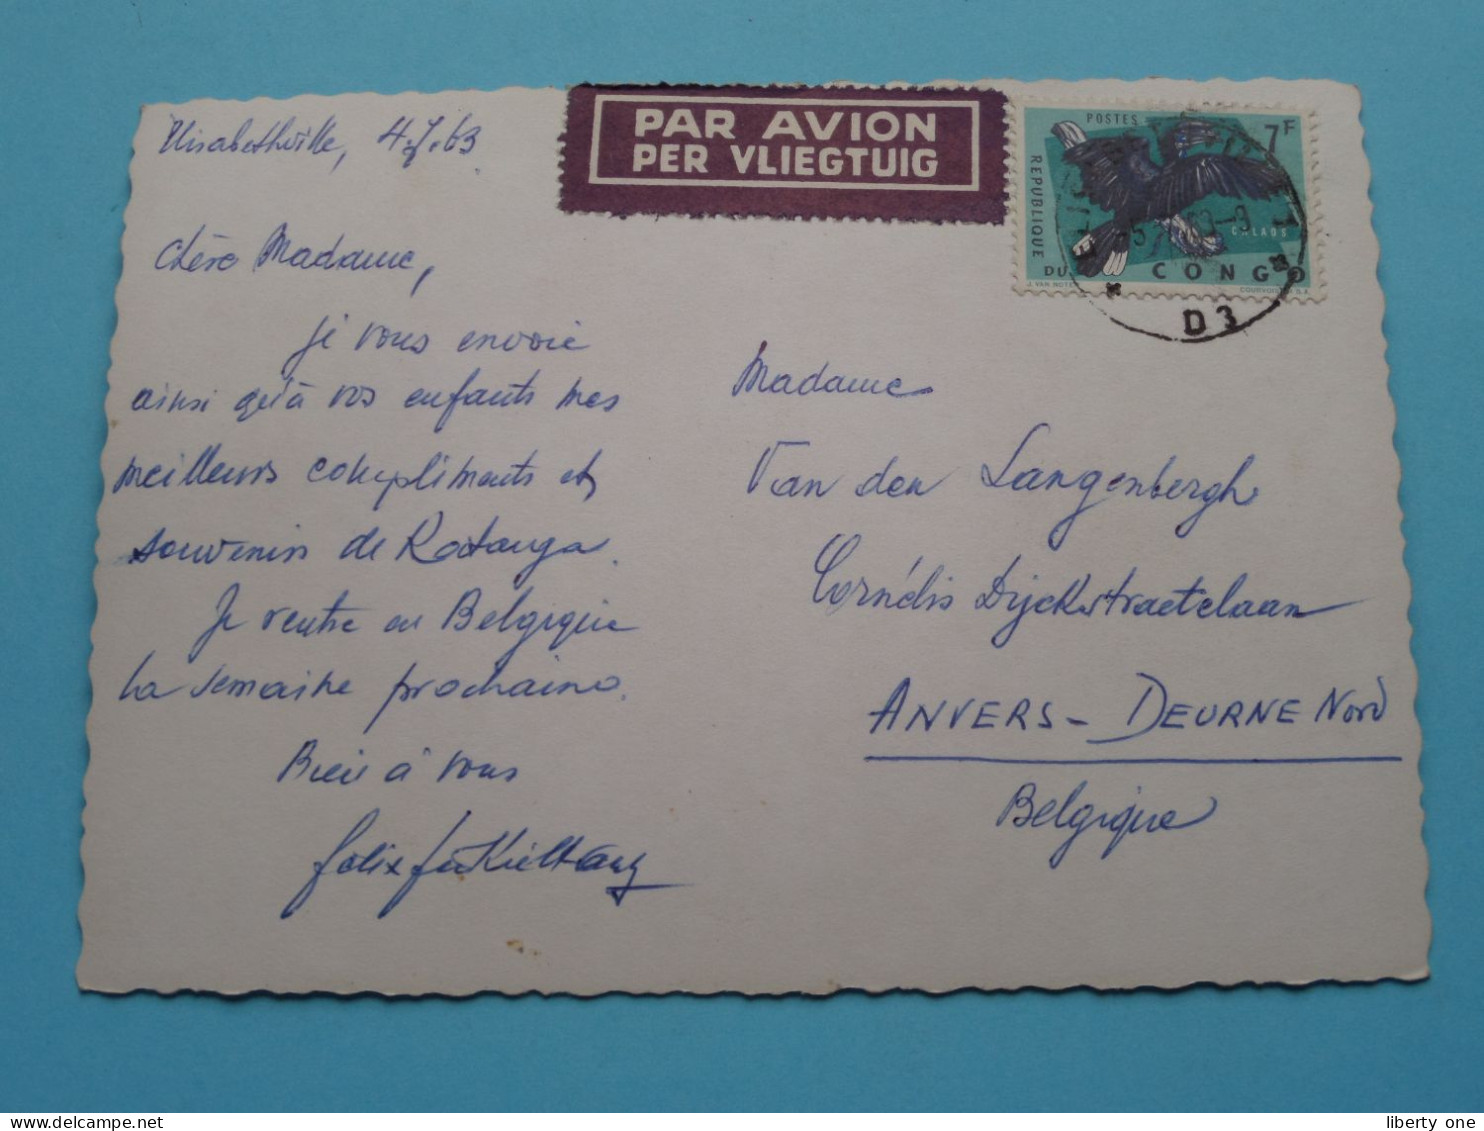 Elisabethville, 4.7.63
Chère Madame,
Je vous envoie
ainsi qu'à vos enfants mes
meilleurs compliments et
souvenirs de Katanga.
Je rentre en Belgique
la semaine prochaine.
Bien à vous
felix
PAR AVION
PER VLIEGTUIG
POSTES
7F
REPUBLIQUE
DU
CONGO
CALAOS
J. VAN NOTEN
D3
Madame
Van den Langenbergh
Cornélis Dijckstraetelaan
ANVERS - DEURNE Nord
Belgique
liberty one